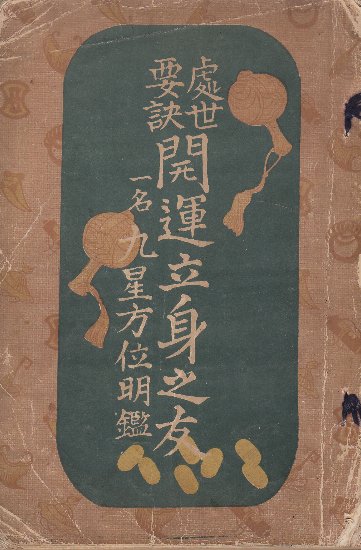 處世
要訣
開運立身之友
一名
九星方位明鑑